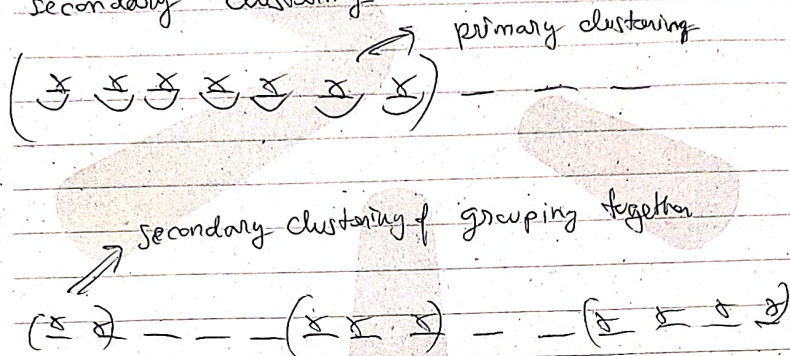 secondary clustering
primary clustering
(x x x x x x x) _ _ _
secondary clustering & grouping together
(x x) _ _ _ (x x x) _ _ _ (x x x x)